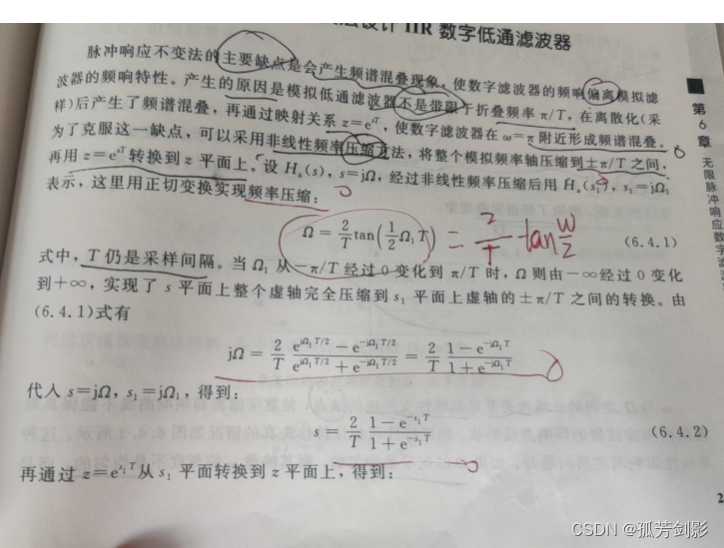 法设计 IIR 数字低通滤波器
脉冲响应不变法的主要缺点是会产生频谱混叠现象，使数字滤波器的频响偏离模拟滤
波器的频响特性。产生的原因是模拟低通滤波器不是带限于折叠频率 π/T，在离散化(采
样)后产生了频谱混叠，再通过映射关系 z=e^{sT}，使数字滤波器在 ω=π 附近形成频谱混叠。
为了克服这一缺点，可以采用非线性频率压缩方法，将整个模拟频率轴压缩到±π/T 之间，
再用 z=e^{sT} 转换到 z 平面上。设 H_a(s)，s=jΩ，经过非线性频率压缩后用 H_a(s₁)，s₁=jΩ₁
表示，这里用正切变换实现频率压缩：
Ω = 2/T tan(1/2 Ω₁T) = 2/T tan w/2 (6.4.1)
式中，T 仍是采样间隔。当 Ω₁ 从 −π/T 经过 0 变化到 π/T 时，Ω 则由 −∞ 经过 0 变化
到 +∞，实现了 s 平面上整个虚轴完全压缩到 s₁ 平面上虚轴的 ±π/T 之间的转换。由
(6.4.1)式有
jΩ = 2/T (e^{jΩ₁T/2} − e^{−jΩ₁T/2})/(e^{jΩ₁T/2} + e^{−jΩ₁T/2}) = 2/T (1 − e^{−jΩ₁T})/(1 + e^{−jΩ₁T})
代入 s=jΩ，s₁=jΩ₁，得到：
s = 2/T (1 − e^{−s₁T})/(1 + e^{−s₁T}) (6.4.2)
再通过 z=e^{s₁T} 从 s₁ 平面转换到 z 平面上，得到：
第
6
章
无限脉冲响应数字滤
2
CSDN @孤芳剑影